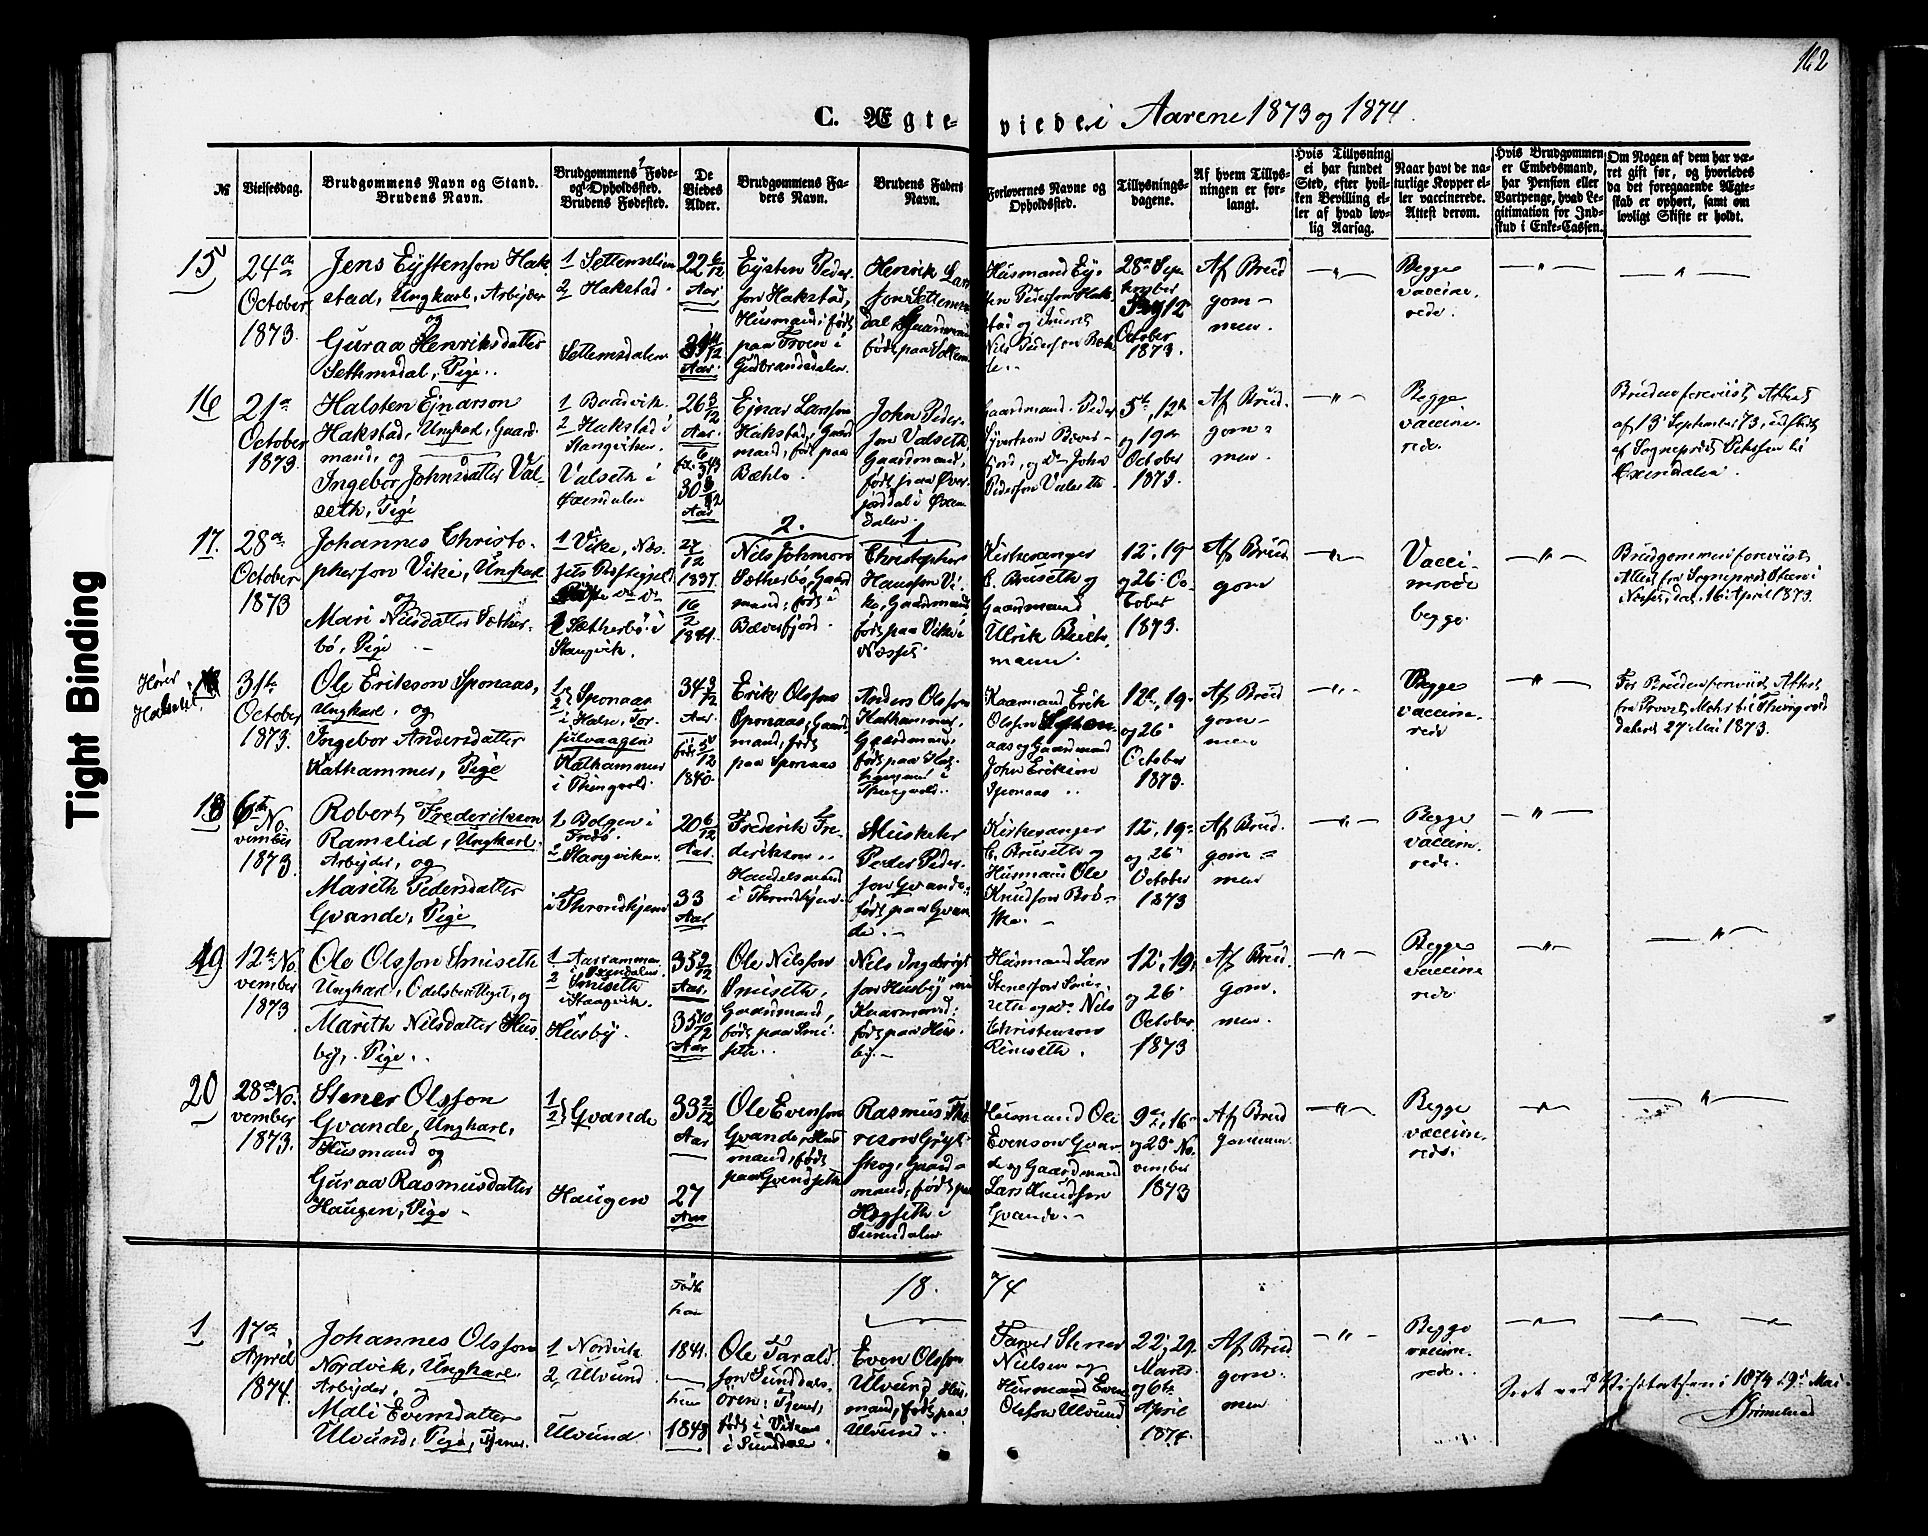 162
C. Ægte- viede i Aarene 1873 og 1874.
Tight Binding
№
Vielsesdag.
Brudgommens Navn og Stand.
Brudens Navn.
Brudgommens Føde-
og Opholdssted.
Brudens Fødested.
De
Viedes
Alder.
Brudgommens Fa-
ders Navn.
Brudens Faders
Navn.
Forlovernes Navne og
Opholdssted.
Tillysnings-
dagene.
Af hvem Tillys-
ningen er for-
langt.
Hvis Tillysning
ei har fundet
Sted, efter hvil-
ken Bevilling el-
ler af hvad lov-
lig Aarsag.
Naar havt de na-
turlige Kopper el-
ler vaccinerede.
Attest derom.
Hvis Brudgommen
er Embedsmand,
har Pension eller
Vartpenge, hvad Le-
gitimation for Ind-
skud i Enke-Cassen.
Om Nogen af dem har væ-
ret gift før, og hvorledes
da det foregaaende Ægte-
skab er ophørt, samt om
lovligt Skifte er holdt.
15
24de
October
1873.
Jens Eystenson Hak-
stad, Ungkarl, Arbejder
og
Guraa Henriksdatter
Settemsdal, Pige.
2 Hakstad.
Settemsdalen
22 6/12
Aar
Eysten Peder-
son Hakstad,
Husmand, født
paa Troen i
Gudbrandsdalen
Henrik Lars
født paa
Husmand Ey-
sten Pederson Hak-
stad og
Nils Pederson
28de Sep-
tember
October
1873.
Af Brud-
gom-
men.
— " —
Begge
vaccine-
rede.
— " —
— " —
16
21de
October
1873
Halsten Ejnarson
Hakstad, Ungkarl, Gaard-
mand, og
Ingebor Johnsdatter Val-
seth, Pige
1 Baadvik
2 Hakstad i
Stangviken
Valseth i
Øxendalen
26 3/12
Aar
30 8/12
Aar
Ejnar Larsson
Hakstad, Gaard-
mand, født paa
Bæhlo.
John Peder-
son Valseth
Gaardmand,
født paa Over-
i Øxen-
dalen.
Gaardmand Peder
Syvertson Bæver-
fjord, og Do John
Pederson Valseth
5te, 12te
og 19de
October
1873.
Af Brud-
gom-
men.
— " —
Begge
vaccine-
rede.
— " —
Bruden foreviist Attest
af 13 September 73, udstedt
af Sogneprest
Øxendalen.
17.
28de
October
1873
Johannes Christo-
pherson Vike, Ungkarl
og
Mari Nilsdatter Sæther-
bø, Pige
1 Vike, Næs-
sets Præstegjeld
2 Sætherbø i
Stangvik.
27/12
1837.
16/2
1841.
2.
Nils Johnson
Sætherbø, Gaard-
mand, født i
Bæverfjord.
1.
Christopher
Hansson Vi-
ke, Gaardmand
født paa Vike i
Næsset.
Kirkesanger
C. Bruseth og
Gaardmand
Ulrik
mann.
12te, 19de
og 26de Oc-
tober
1873.
Af Brud-
gom
— " —
Vacci-
nerede
begge.
— " —
Brudgommen foreviist
Attest fra Sogneprest
Næsset, dat. 16 April 1873.
Hører
Halse til.
31te
October
1873.
Ole Erikson Sponaas,
Ungkarl, og
Ingebor Andersdatter
Kathammer, Pige
1 2 Sponaas
i Halse, Tor-
julvaagen
Kathammer
i Thingvold.
34 9/12
Aar
født 5/12
1840.
Erik Olsson
Sponaas, Gaard-
mand, født
paa Sponaas
Anders Olsson
Kathammer,
Gaardmand,
født paa Kat-
hammer i
Thingvold.
Gaardmand Erik
Olsson Spon-
aas og Gaardmand
John Erikson
Sponaas
12te, 19de
og 26de
October
1873.
Af Brud-
gom-
men
— " —
Begge
vaccine-
rede
— " —
For Bruden foreviist Attest
fra Provst Møhr til Thingvold
dateret 27 Mai 1873.
18
6te No-
vember
1873
Robert Frederikson
Ramslid, Ungkarl,
Arbejder, og
Marith Pedersdatter
Gvande, Pige
1 Bolgen i
Fredø.
2 Stangviken
i Throndhjem
20 6/12
Aar.
33
Aar
Frederik Fre-
derikson,
Handelsmand
i Throndhjem.
Muskeler
Peder Peder-
son Gvande,
født paa Gvan-
de.
Kirkesanger
C. Bruseth og
Husmand Ole
Knudson Brø-
ske.
12te, 19de
og 26de
October
1873
Af Brud-
gom-
men
— " —
Begge
vaccine-
rede.
— " —
19
12te No-
vember
1873
Ole Olsson Smiseth
Ungkarl, Odelsberettiget, og
Marith Nilsdatter Hus-
by, Pige.
1
i Øxendalen.
2 Smiseth
i Stangvik.
Husby
35 2/12
Aar.
35 10/12
Aar
Ole Nilsson
Smiseth,
Gaardmand,
født paa Smi-
seth.
Nils Ingebrigt-
son Husby
Gaardmand,
født paa Hus-
by.
Husmand Lars
Stenerson Smi-
seth og do. Nils
Christenson
12te, 19de
og 26de
October
1873
Af Brud-
gom-
men
— " —
Begge
vaccine-
rede
— " —
— " —
20
28de No-
vember
1873.
Stener Olsson
Gvande, Ungkarl,
Husmand og
Guraa Rasmusdatter
Haugen, Pige
1 2 Gvande
Haugen
33 2/12
Aar
27
Aar
Ole Evenson
Gvande, Hus-
mand, født
paa Gvendseth
Rasmus Tho-
reson
skog, Gaard-
mand, født paa
Høgseth i
Surendalen
Husmand Ole
Evenson Gvan-
de og Gaardmand
Lars Knudson
Gvande.
9de, 16de
og 23de No-
vember
1873
Af Brud-
gommen
— " —
Begge
vaccine-
rede.
— " —
— " —
18 74
Født
han
1
17de
April
1874.
Johannes Olsson
Nordvik, Ungkarl,
Arbejder, og
Mali Evensdatter
Ulvund, Pige, Tjener
1 Nordvik
2 Ulvund
Ulvund.
1841.
hun
1848
Ole Tarald-
son Sunddals-
øren, Tjener,
født i
i Sunddalen
Even Olsson
Ulvund, Hus-
mand, født paa
Ulvund.
Farver Stener
Nielsen og
Husmand Even
Olsson Ulvund
22de, 29de
Marts
og 6te
April
1874.
Af Brud-
gom-
men
— " —
Begge
vaccine-
rede.
— " —
— " —
Seet ved Visitatsen i 1874 29de Mai